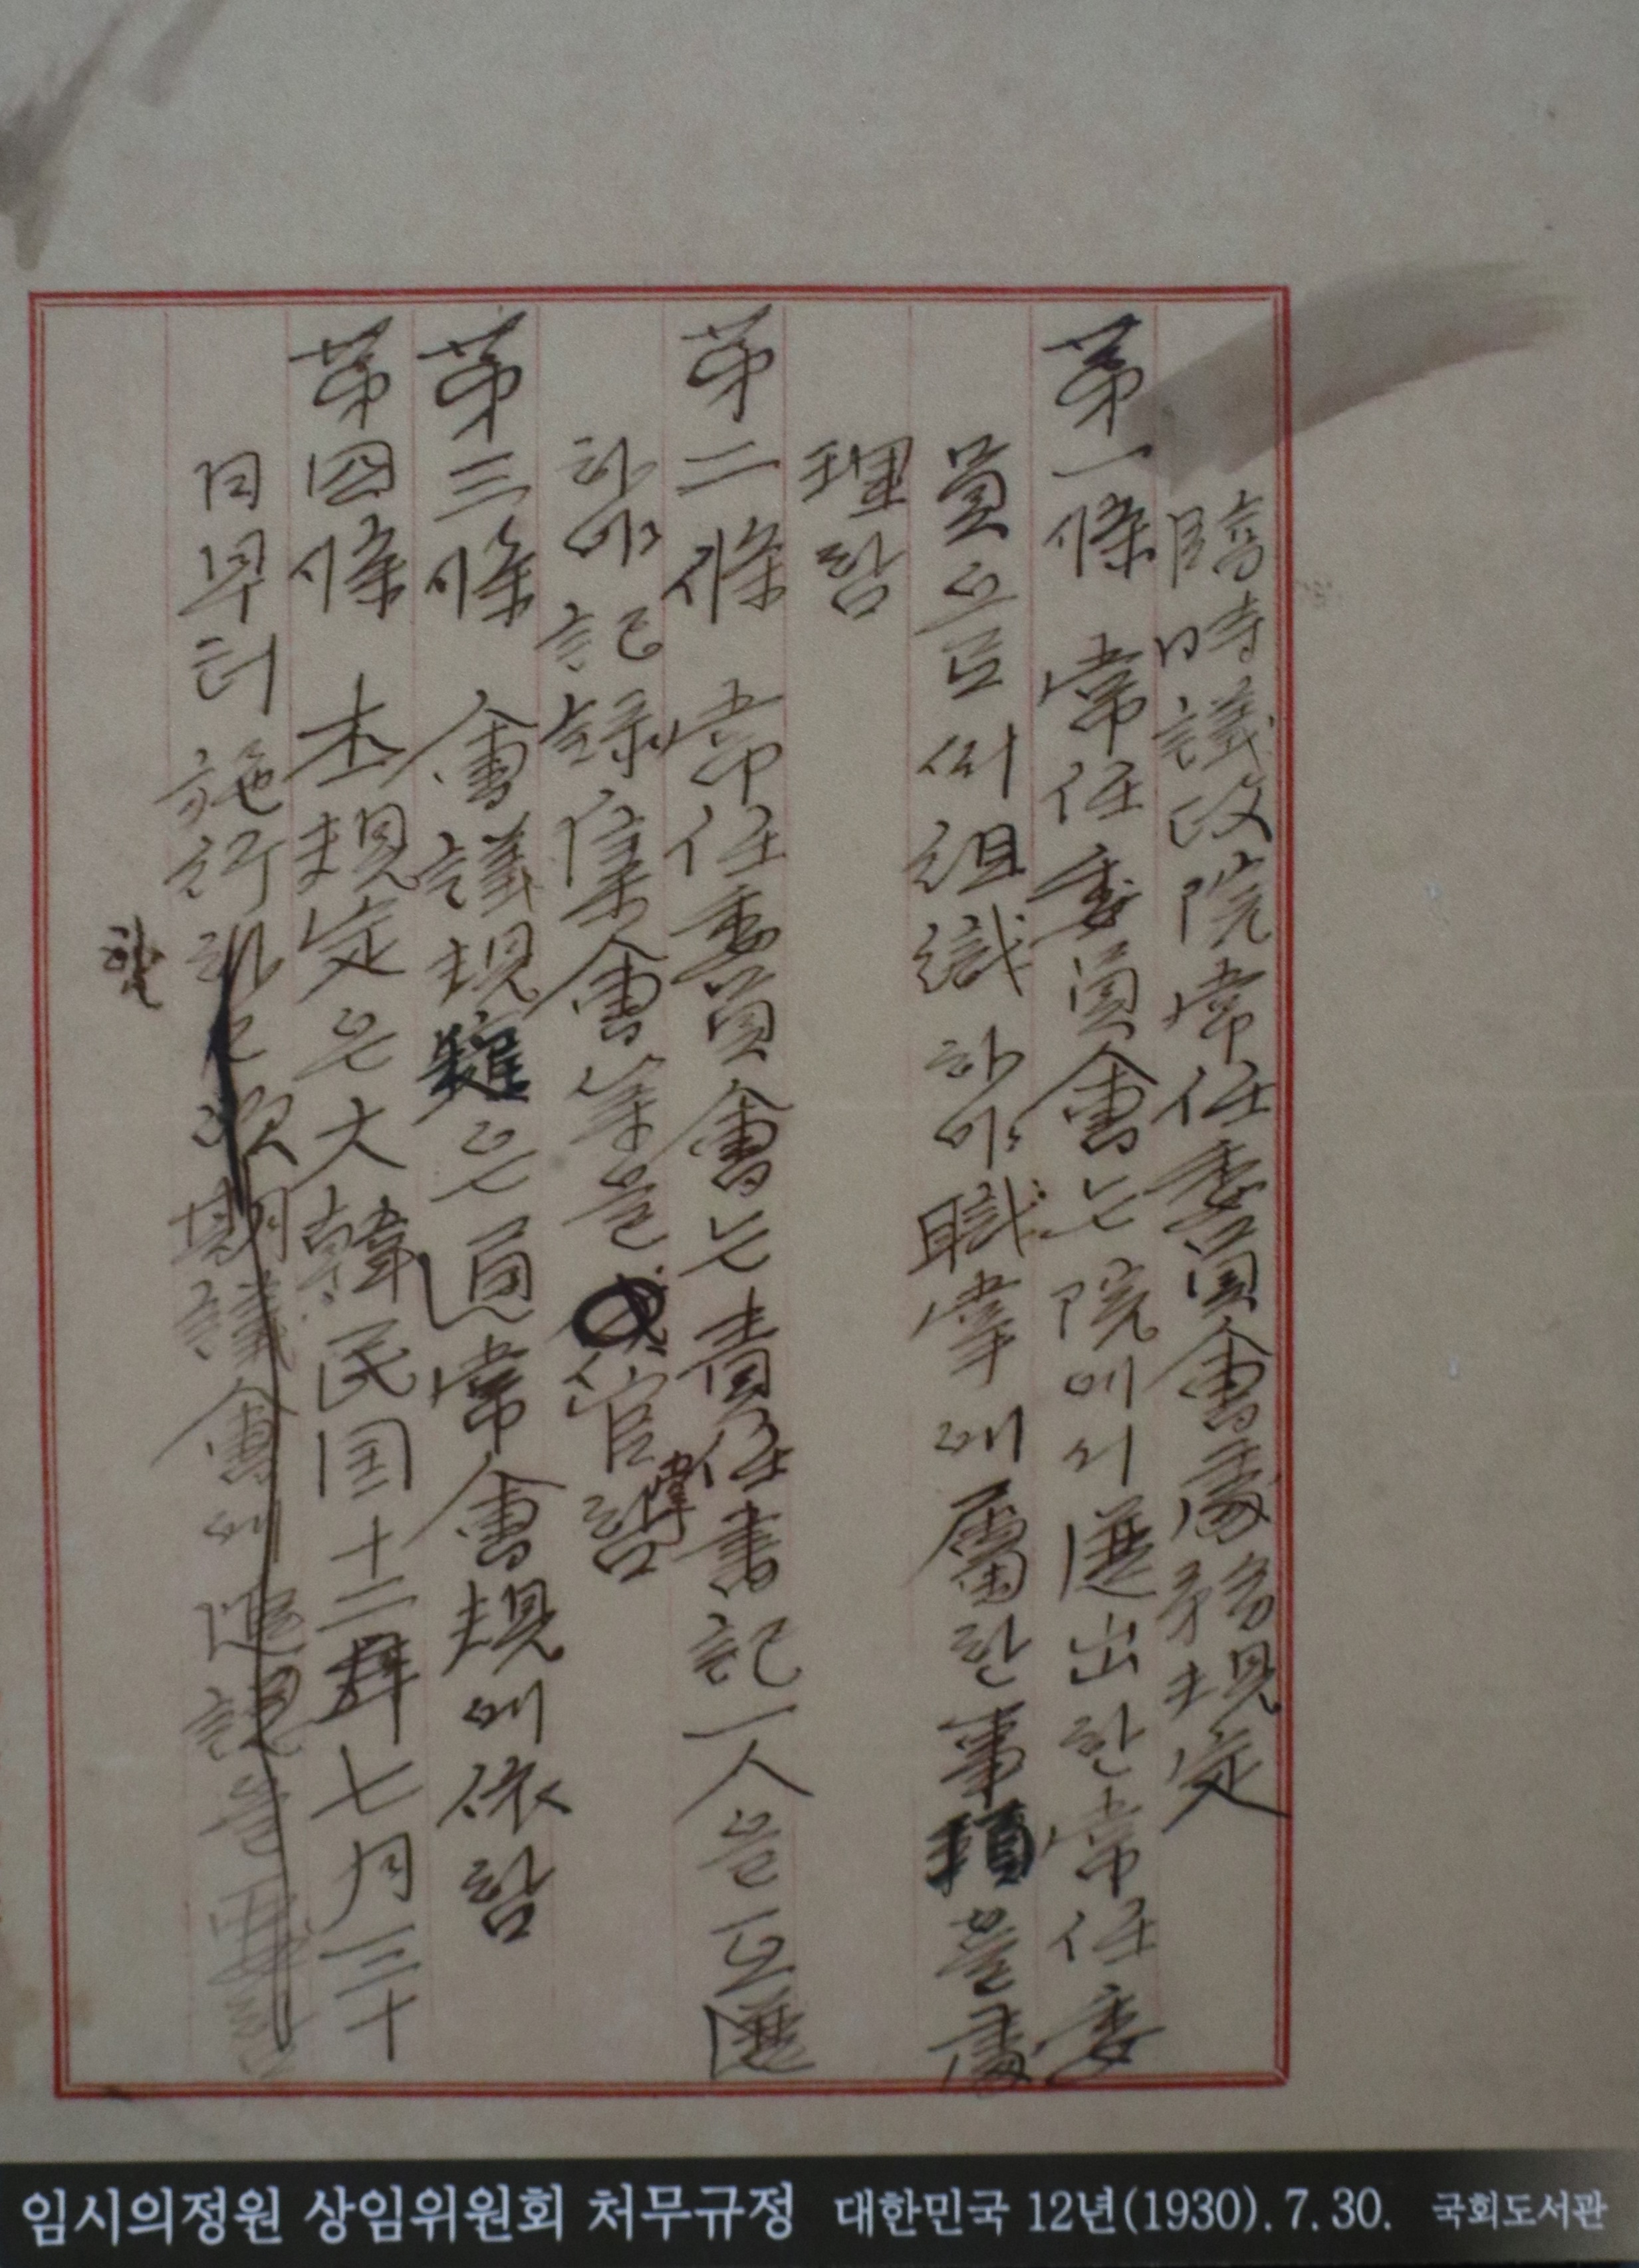 臨時議政院常任委員會處務規定
第一條 常任委員會는 院에서 選出한 常任委
員으로써 組織하야 職掌에 屬한 事項을 處
理함
第二條 常任委員會는 責任書記一人을 互選
하야 記錄 集會 等을 管掌함
第三條 會議規範은 通常會規에 依함
第四條 本規定은 大韓民国十二年七月三十
日早터 施行하고 次期議會에 追認을 要함
함
임시의정원 상임위원회 처무규정 대한민국 12년(1930). 7. 30. 국회도서관